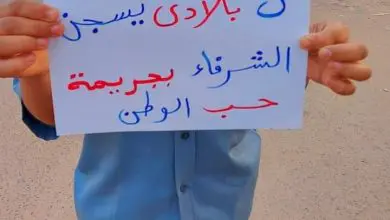 بلادي يسجن
الشرفاء بجريمة
حب الوطن